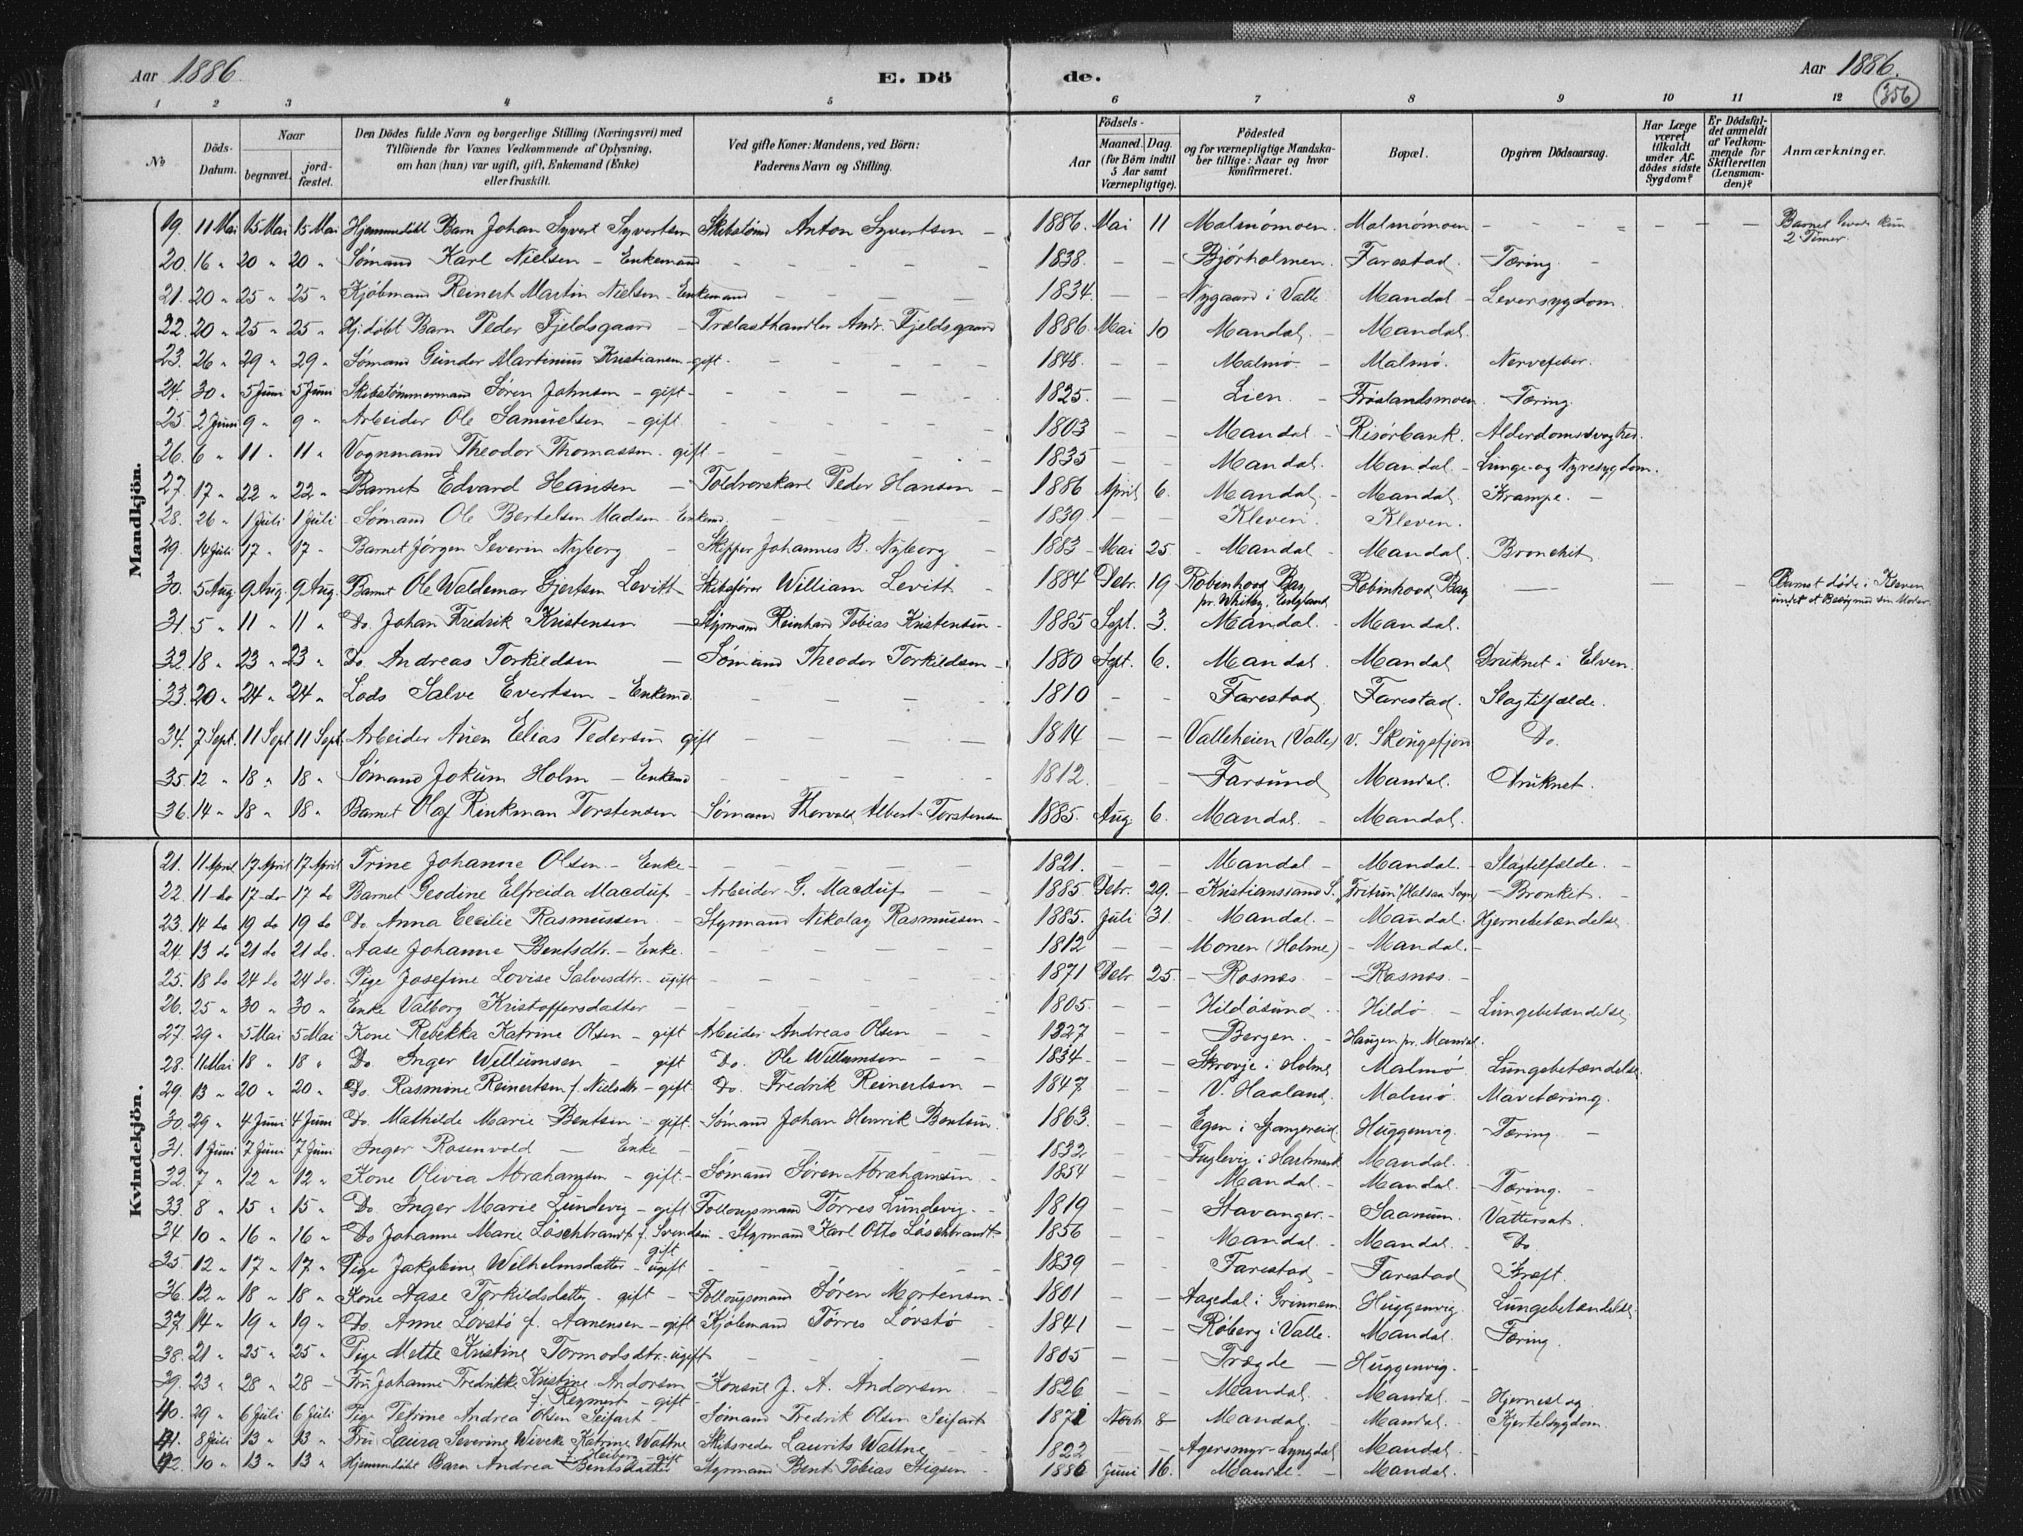 Aar 1886. E. Dö de. Aar 1886.
356
1 2 3 4 5 6 7 8 9 10 11 12
No
Döds-Datum.
Naar
begravet.
jord-fæstet.
Den Dödes fulde Navn og borgerlige Stilling (Næringsvei) med
Tilföiende for Voxnes Vedkommende af Oplysning,
om han (hun) var ugift, gift, Enkemand (Enke)
eller fraskilt.
Ved gifte Koner: Mandens, ved Börn:
Faderens Navn og Stilling.
Födsels-
Aar
Maaned. Dag.
(for Börn indtil
5 Aar samt
Værnepligtige).
Födested
og for værnepligtige Mandska-
ber tillige: Naar og hvor
konfirmeret.
Bopæl.
Opgiven Dödsaarsag.
Har Læge
været
tilkaldt
under Af-
dödes sidste
Sygdom?
Er Dödsfal-
det anmeldt
af Vedkom-
mende for
Skifteretten
(Lensman-
den)?
Anmærkninger.
Mandkjön.
19. 11 Mai 15 Mai 15 Mai Hjemmedöbt Barn Johan Syvert Syvertsen Skibstömd Anton Syvertsen - 1886. Mai 11 Malmømoen. Malmømoen - - - - - - Barnet levede kun 2 Timer.
20. 16 " 20 " 20 " Sømand Karl Nielsen - Enkemand - - - - 1838. - - Bjørholmen. Farestad. Tæring. -
21. 20 " 25 " 25 " Kjöbmand Reinert Martin Nielsen - Enkemand - - - - 1834. - - Nygaard i Valle Mandal - Leversygdom.
22. 20 " 25 " 25 " Hj.døbt Barn Peder Fjeldsgaard - Trælasthandler Andr. Fjeldsgaard 1886. Mai 10 Mandal - Mandal.
23. 26 " 29 " 29 " Sømand Gunder Martinius Kristiansen - gift. - - - - 1848. - - Malmø. - Malmø. Nervefeber.
24. 30 " 5 Juni 5 Juni Skibstømmermand Søren Johnsen - gift - - - - - 1825. - - Lien. - Frøslandsmoen. Tæring.
25. 2 Juni 9 " 9 " Arbeider Ole Samuelsen - gift. - - - - 1803 - - Mandal - Risørbank. Alderdomssvaghed.
26. 6 " 11 " 11 " Vognmand Theodor Thomassen - gift - - - - 1835 - - Mandal. Mandal - Lunge- og Nyresygdom.
27. 17 " 22 " 22 " Barnet Edvard Hansen - Toldrorskarl Peder Hansen - 1886 April 6. Mandal. - Mandal. Krampe. -
28. 26 " 1 Juli 1 Juli - Sømand Ole Bertelsen Madsen - Enkemd. - - - 1839. - - Kleven. Kleven.
29. 14 Juli 17 " 17 " Barnet Jørgen Severin Nyborg. - Skipper Johannes B. Nyborg - 1883 - Mai 25 - Mandal - Mandal. Bronchit.
30. 5 Aug. 9 Aug. 9 Aug. Barnet Ole Waldemar Gjertsen Levitt Skibsfører William Levitt - 1884 Debr. 19 Robinhood Bay pr. Whitby, England Robinhood Bay - - - Barnet døde i Kleven under et Besøg med sin Moder.
31. 5 " 11 " 11 " Do. Johan Fredrik Kristensen - Styrmand Reinhard Tobias Kristensen - 1885 Sept. 3. Mandal. - Mandal.
32. 18 " 23 " 23 " Do. Andreas Torkildsen - Sømand Theodor Torkildsen - 1880 Sept. 6. Mandal. Mandal Druknet i Elven.
33. 20 " 24 " 24 " Lods Salve Evertsen - Enkemd. - - - - 1810 - - Farestad Farestad. Slagtilfælde.
34. 7 Sept. 11 Sept 11 Sept. Arbeider Aven Elias Pedersen gift - - - - 1814 - - Valleheien (Valle) v. Skougsfjord Do.
35. 12 " 18 " 18 " Sømand Jokum Holm - Enkemd - - - - 1812. - - Farsund Mandal. Druknet.
36. 14 " 18 " 18 " Barnet Olaf Rinkman Torstensen Sømand Thorvald Albert Torstensen 1885. Aug. 6. Mandal. - Mandal.
Kvindekjön.
21. 11 April 17 April 17 April Trine Johanne Olsen - Enke - - - - 1821. - - Mandal - Mandal. - Slagtilfælde. -
22. 11 do 17 do 17 do Barnet Geodine Elfreida Macduf - Arbeider G. Macduf - - 1885 Debr. 29. - Kristianssand S. "Fritun" (Halsaa Sogn) - Bronket. -
23. 14 do 19 do 19 do Do. Anna Cecilie Rasmussen - Styrmand Nikolay Rasmussen - 1885. Juli 31. - Mandal. - Mandal. Hjernebetændelse.
24. 13 do 21 do 21 do. Aase Johanne Bentsdtr. - Enke. - - - - 1812 - - Monen (Holme) - Mandal. -
25. 18 do 24 do 24 do. Pige Josefine Lovise Salvesdtr. - ugift - - - - 1871 Debr. 25. - Rosnes. - Rosnes. -
26. 25 " 30 " 30 " Enke Valborg Kristoffersdatter - - - - 1805. - - Hildøsund. Hildø - Lungebetændelse.
27. 29 " 5 Mai 5 Mai Kone Rebekka Katrine Olsen - gift Arbeider Andreas Olsen - - 1827 - - Bergen. - Haugen pr. Mandal.
28. 11 Mai 18 " 18 " Do. Inger Willumsen - gift Do. Ole Willumsen - - 1834. - - Skrovje i Holme Malmø Lungebetændelse
29. 13 " 20 " 20 " Do. Rasmine Reinertsen f. Nielsdtr. - gift. Do. Fredrik Reinertsen - 1847 - - V. Haaland. Malmø. Mavetæring.
30. 29 " 4 Juni 4 Juni Do. Mathilde Marie Bentsen - gift. Sømand Johan Henrik Bentsen. 1863. - - Egen i Spangereid Huggenvig. Tæring -
31. 1 Juni 7 Juni 7 Juni Inger Rosenvold - Enke - - - - 1832 - - Fuglevig i Hartmark Mandal.
32. 7 " 12 " 12 " Kone Olivia Abrahamsen - gift - Sømand Søren Abrahamsen. 1854 - - Mandal. - Mandal. - Tæring. -
33. 8 " 15 " 15 " Do. Inger Marie Lundevig - gift Follougsmand Tørres Lundevig. - 1819 - - Stavanger. - Saanum. Vattersot.
34 10 " 16 " 16 " Do Johanne Marie Löschbrandt f. Svendsen - gift Styrmand Karl Otto Löschbrandt 1856 - - Mandal - Mandal. - Do.
35. 12 " 17 " 17 " Pige Jakobine Wilhelmsdatter - ugift - - - - 1839 - - Farestad - Farestad Kræft.
36. 12 " 18 " 18 " Kone Aase Torkildsdatter - gift - Follougsmand Søren Mortensen - 1801 - - Aagedal i Grinnem Huggenvig. Lungebetændelse
37. 14 " 19 " 19 " Do. Anne Løvstø f. Aanensen - gift Kjøbmand Tørres Løvstø - 1841 - - Røberg i Valle. Mandal. Tæring.
38. 21 " 25 " 25 " Pige Mette Kristine Tormodsdtr. - ugift - - - - 1805 - - Trægde - Huggenvig. -
39. 23 " 28 " 28 - Fru Johanne Fredrikke Kristine Andorsen f. Reymert - gift - Konsul J. A. Andorsen. - 1826 - - Mandal. - Mandal -
40. 29 " 6 Juli 6 Juli Pige Petrine Andrea Olsen Seifart - Sømand Fredrik Olsen Seifart 1871 Novb. 8 - Mandal. - Mandal. Hjernest og Kjertelsygdom.
41. 8 Juli 13 " 13 " Fru Laura Severine Wiveke Katrine Wattne f. Heiberg - gift Skibsreder Laurits Wattne - - 1822 - - Agersmyr - Lyngdal Mandal. -
42. 10 " 13 " 13 " Hjemmedøbt Barn Andrea Bentsdatter Styrmand Bent Tobias Stigsen - 1886 Juni 16. - Mandal. - Mandal.